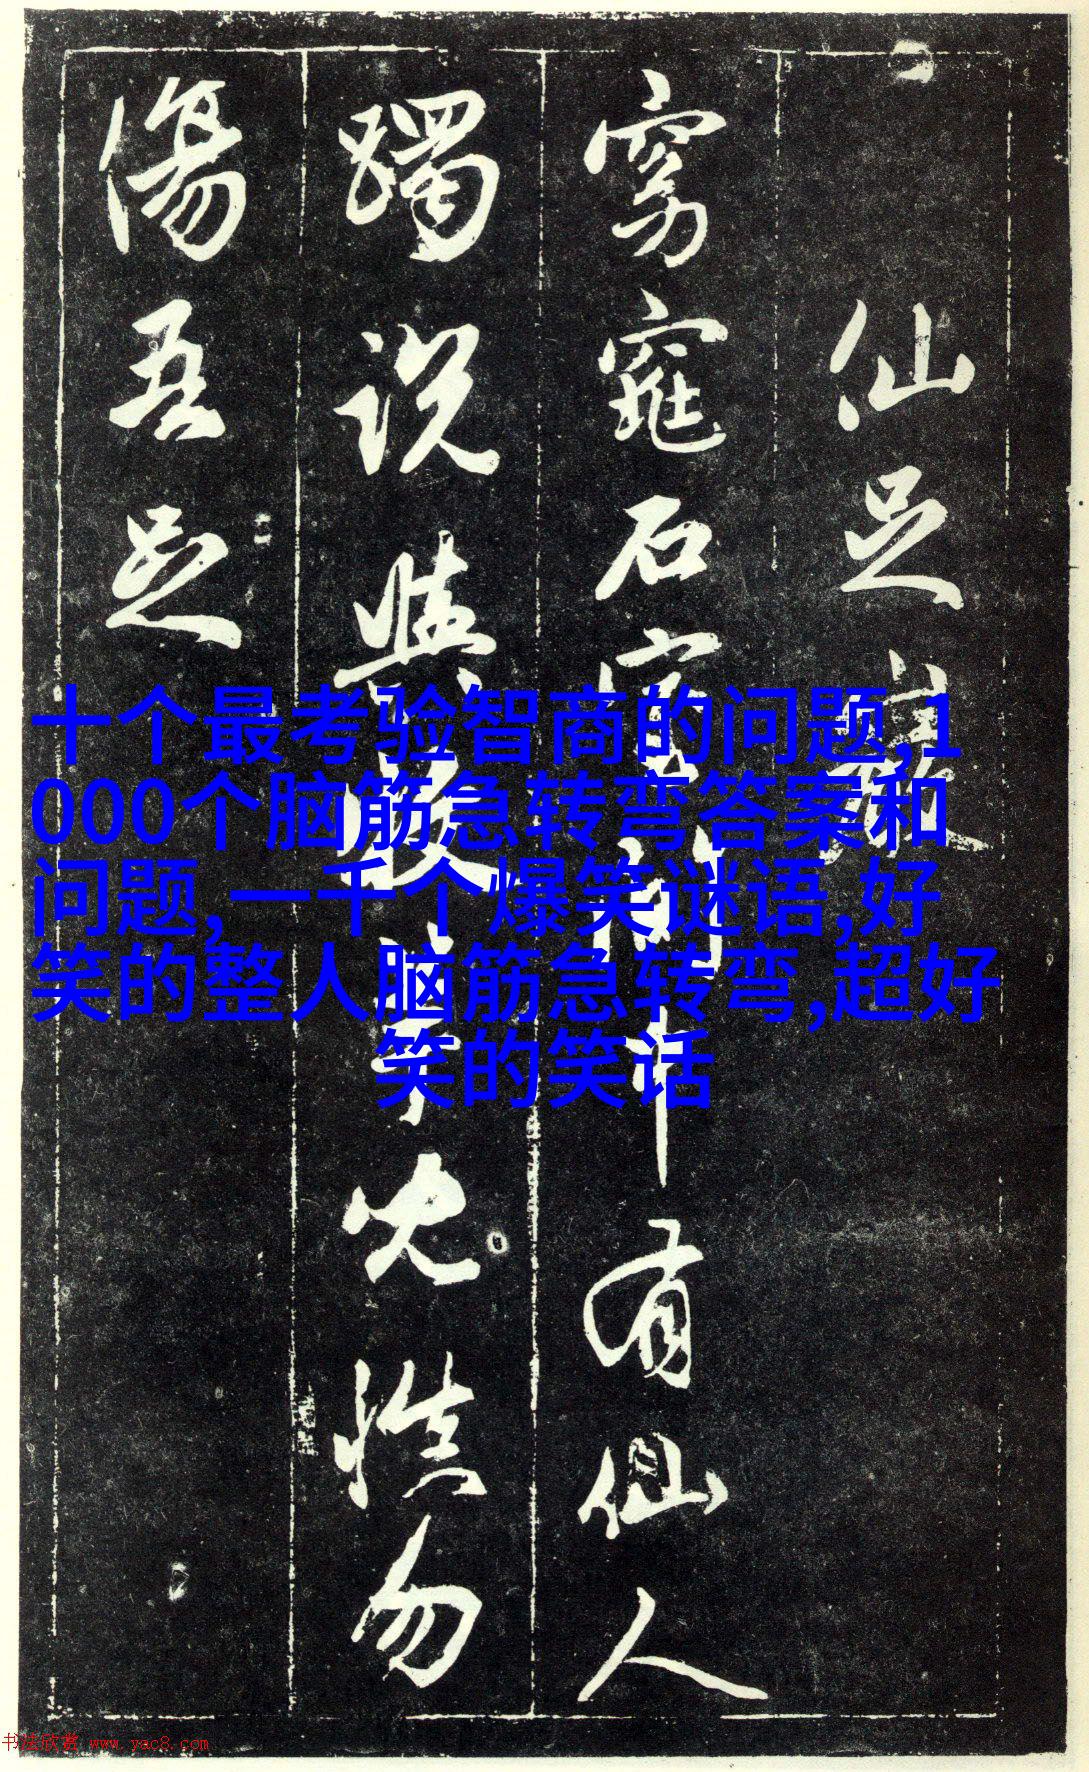 仙足
窈窕石室間中有仙人
躅說與牧羊兒慎勿
傷吾足
十个最考验智商的问题,1
000个脑筋急转弯答案和
问题,一千个爆笑谜语,好
笑的整人脑筋急转弯,超好
笑的笑话
书法欣赏 www.yac8.com